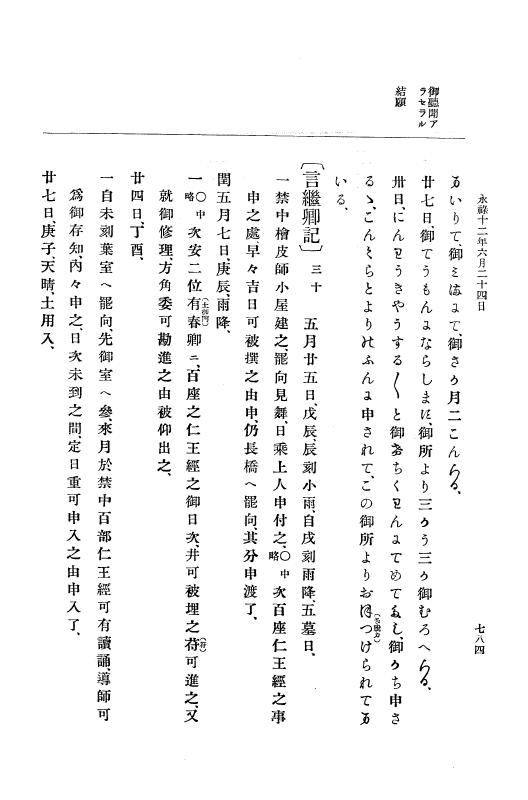 永祿十二年六月二十四日
七八四
御聽聞ア
ラセラル
結願
まいりて、御みはまて、御さか月二こんまいる、
廿七日、御てうもんまならしまに、御所より三かう三か御むろへまいる、
卅日、にんわうきやうする〳〵と御けちくわんまてめてたし、御うち申さ
るゝ、こんしらとよりみふんま申されて、この御所よりおほつけられてま
いる、
〔言繼卿記〕三十
五月廿五日、戊辰、辰刻小雨、自戌刻雨降、五墓日、
一禁中檜皮師小屋建之、罷向見舞、日乘上人申付之、○中略 次百座仁王經之事
申之處、早々吉日可被撰之由申、仍長橋へ罷向、其分申渡了、
閏五月七日、庚辰、雨降、
一○中略 次安二位有春卿ニ(土御門)、百座之仁王經之御日次、幷可被埋之苻(符)可進之、又
就御修理、方角委可勘進之由被仰出之、
廿四日、丁酉、
一自未刻葉室へ罷向、先御室へ參、來月於禁中百部仁王經可有讀誦、導師可
爲御存知、內々申之、日次未到之間、定日重可申入之由申入了、
廿七日、庚子、天晴、土用入、